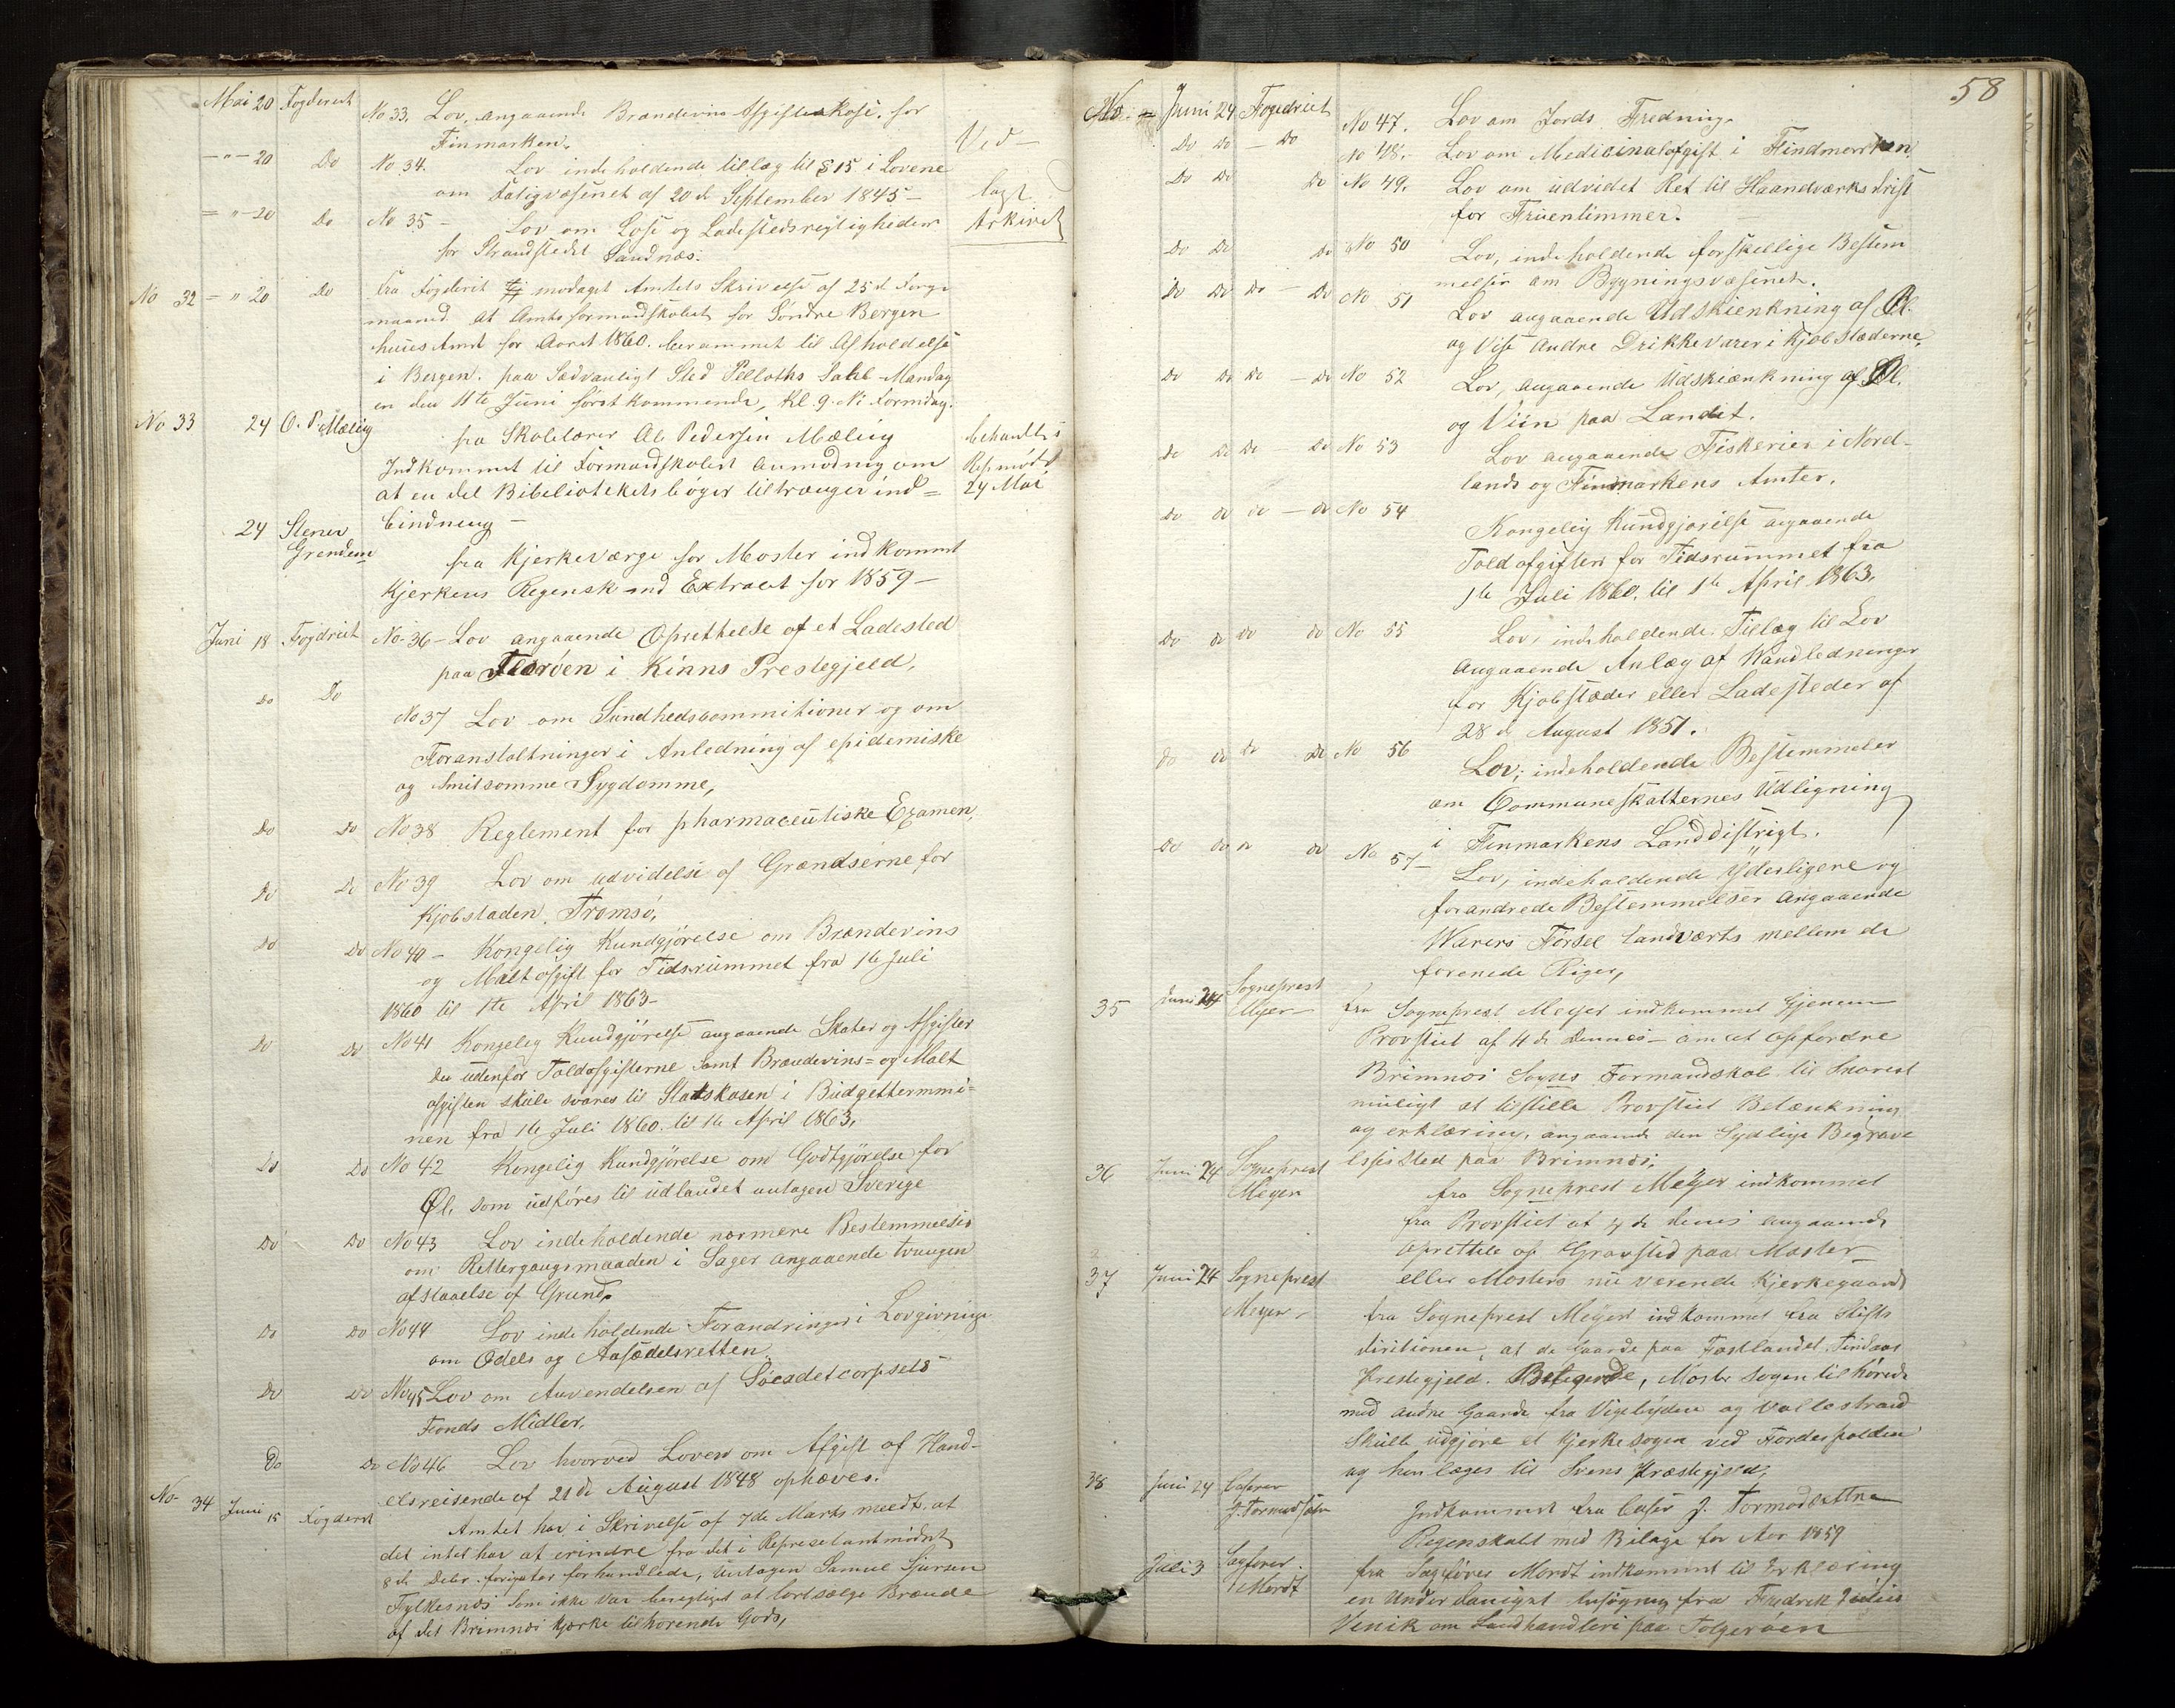 Mai 20 Fogderiet No 33. Lov, angaaende Brændevins Afgifters for
Finmarken.
Ved-
— " — 20 Do No 34. Lov indeholdende tillæg til § 15 i Lovene
om Fatigvæsenet af 20de September 1845 —
lagt
= " — 20 Do No 35 — Lov om Lose og Ladestedsrigtigheder
Arkivet
for Strandstedet Sandnæs.
No 32 = " 20 Do Fra Fogderit modaget Amtets Skrivelse af 25de forrige
maaned at Amtsformandskabet for Søndre Bergen
huus Amt for Aaret 1860. berammet til Afholdelse
i Bergen. paa Sædvanligt Sted Sahl Mandag
en den 11te Juni først kommende, Kl. 9. Ni Formidag.
No 33 24 O. P. Mæling fra Skolelærer Ole Pedersen Mæling
behandles
Indkommet til Formandskabet anmodning om
Rep. mødet
at en del Bibeliotekets bøger tiltrænger ind=
24 Mai
bindning —
24 Stener
Grendem
fra Kjerkeværge for Moster indkommet
Kjerkens Regensk and Extract for 1859 —
Juni 18 Fogdriet No 36 — Lov angaaende Oprettelse of et Ladested
paa Florøen i Kinns Prestegjeld,
Do Do No 37 Lov om Sundhedscommitioner og om
Foranstaltninger i Anledning af epidemiske
og Smitsomme Sygdomme,
Do Do No 38 Reglement for pharmaceutiske Examen,
Do Do No 39 Lov om udvidelse af Grændserne for
Kjøbstaden Tromsø,
Do Do No 40 — Kongelig Kundgjørelse om Brændevins
og Maltafgift for Tidsrummet fra 1te Juli
1860 til 1te April 1863 —
Do Do No 41 Kongelig Kundgjørelse angaaende Skater og Afgifter
der udenfor Toldafgifterne Samt Brændevins= og Malt
afgiften skule svares til Statskasen i Budgettermmi=
nen fra 1te Juli 1860. til 1te April 1863,
Do Do No 42 Kongelig Kundgjørelse om Godtgjørelse for
Øl, som udføres til udlandet untagen Sverige
Do Do No 43 Lov indeholdende nærmere Bestemmelser
om Rettergangsmaaden i Sager angaaende tvungen
afstaaelse af Grund.
Do Do No 44 Lov indeholdende Forandringer i Lovgivninge
om Odels og Aasædesretten.
Do Do No 45 Lov om Anvendelsen af Søcadetcorpsets
Fonds Midler,
Do Do No 46 Lov hvorved Loven om Afgift af Hand-
elsreisende af 21de August 1848 ophæves.
No 34 Juni 15 Fogderiet Amtet har i Skrivelse af 7de Marts meedt, at
det intet har at erindre fra det i Represetantmødet
8de Debr. forigaar forhandlede, untagen Samuel Sjursen
Fylkesnes som ikke var beregtiget at bortsælge Brænde
af det Brimnes kjerke tilhørende Gods,
58
No Juni 24 Fogedriet No 47. Lov om Jords Fredning.
Do Do — Do No 48. Lov om Medicinalafgift i Findmarken
Do Do Do No 49. Lov om udvidet Ret til Haandværksdrift
for Fruentimmer.
Do Do Do No 50 Lov, indeholdende forskellige Bestem
melser om Bygningsvæsenet.
Do Do Do — Do No 51 Lov angaaende Udskienkning af Øl.
og Vise Andre Drikkevarer i Kjøbstæderne
Do Do Do — Do No 52 Lov, angaaende Udskiænkning af Øl.
og Viin paa Landet.
Do Do Do — Do No 53 Lov angaaende Fiskerier i Nord-
lands og Finmarkens Amter,
Do Do Do — Do No 54 Kongelig Kundgjørelse angaaende
Toldafgifter for Tidsrummet fra
1te Juli 1860. til 1te April 1863,
Do Do Do Do No 55 Lov, indeholdende Tillæg til Lov
Angaaende Anlæg af Wandledninger
for Kjøbstæder eller Ladesteder af
28de August 1851.
Do Do Do Do No 56 Lov, indeholdende Bestemmelser
om Communeskatternes Udligning
i Finmarkens Landdistrigt.
Do Do Do Do No 57 — Lov, indeholdende yderligere og
forandrede Bestemmelser angaaende
Warers Førsel landværts mellem de
forenede Riger,
35 Juni 24 Sogneprest
Meyer —
fra Sogneprest Meyer indkommet Gjenem
Provstiet af 4de dennes — om at opfordre
Brimnes Sogns Formandskab til Snarest
muligt at tilstille Provstiet Betænkning
og erklæring, angaaende den Sydlige Begrave
lses Sted paa Brimnes,
36 Juni 24 Sogneprest
Meyer
fra Sogneprest Meyer indkommet
fra Provstiet af 4de denes angaaende
oprettele af Gravsted paa Moster
eller Mosters nu værende Kjerkegaard
37 Juni 24 Sogneprest
Meyer,
fra Sogneprest Meyer indkommet fra Stifts
diritionen, at de Gaarde paa Fastlandet Findaas
Prestegjeld. Beligende, Moster Sogen tilhørende
med andre Gaarde fra Vigebyden og Vallestrand
Skulle udgjøre et Kjerkesogen ved Førdespolden
og henlæges til Svens Præstegjeld,
38 Juni 24 Caserer
J. Tormodsæter
Indkommet fra Caser J. Tormodsættre
Regenskabt med Bilage for Aar 1859
Juli 3 Sagfører
Mordt
fra Sagfører Mordt indkommet til Erklæring
en Underdanigst Ansøgning fra Fredrek Julius
Venik om Landhandleri paa Folgerøen